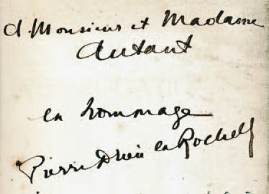 à Monsieur et Madame
Autant
en hommage
Pierre Drieu la Rochelle